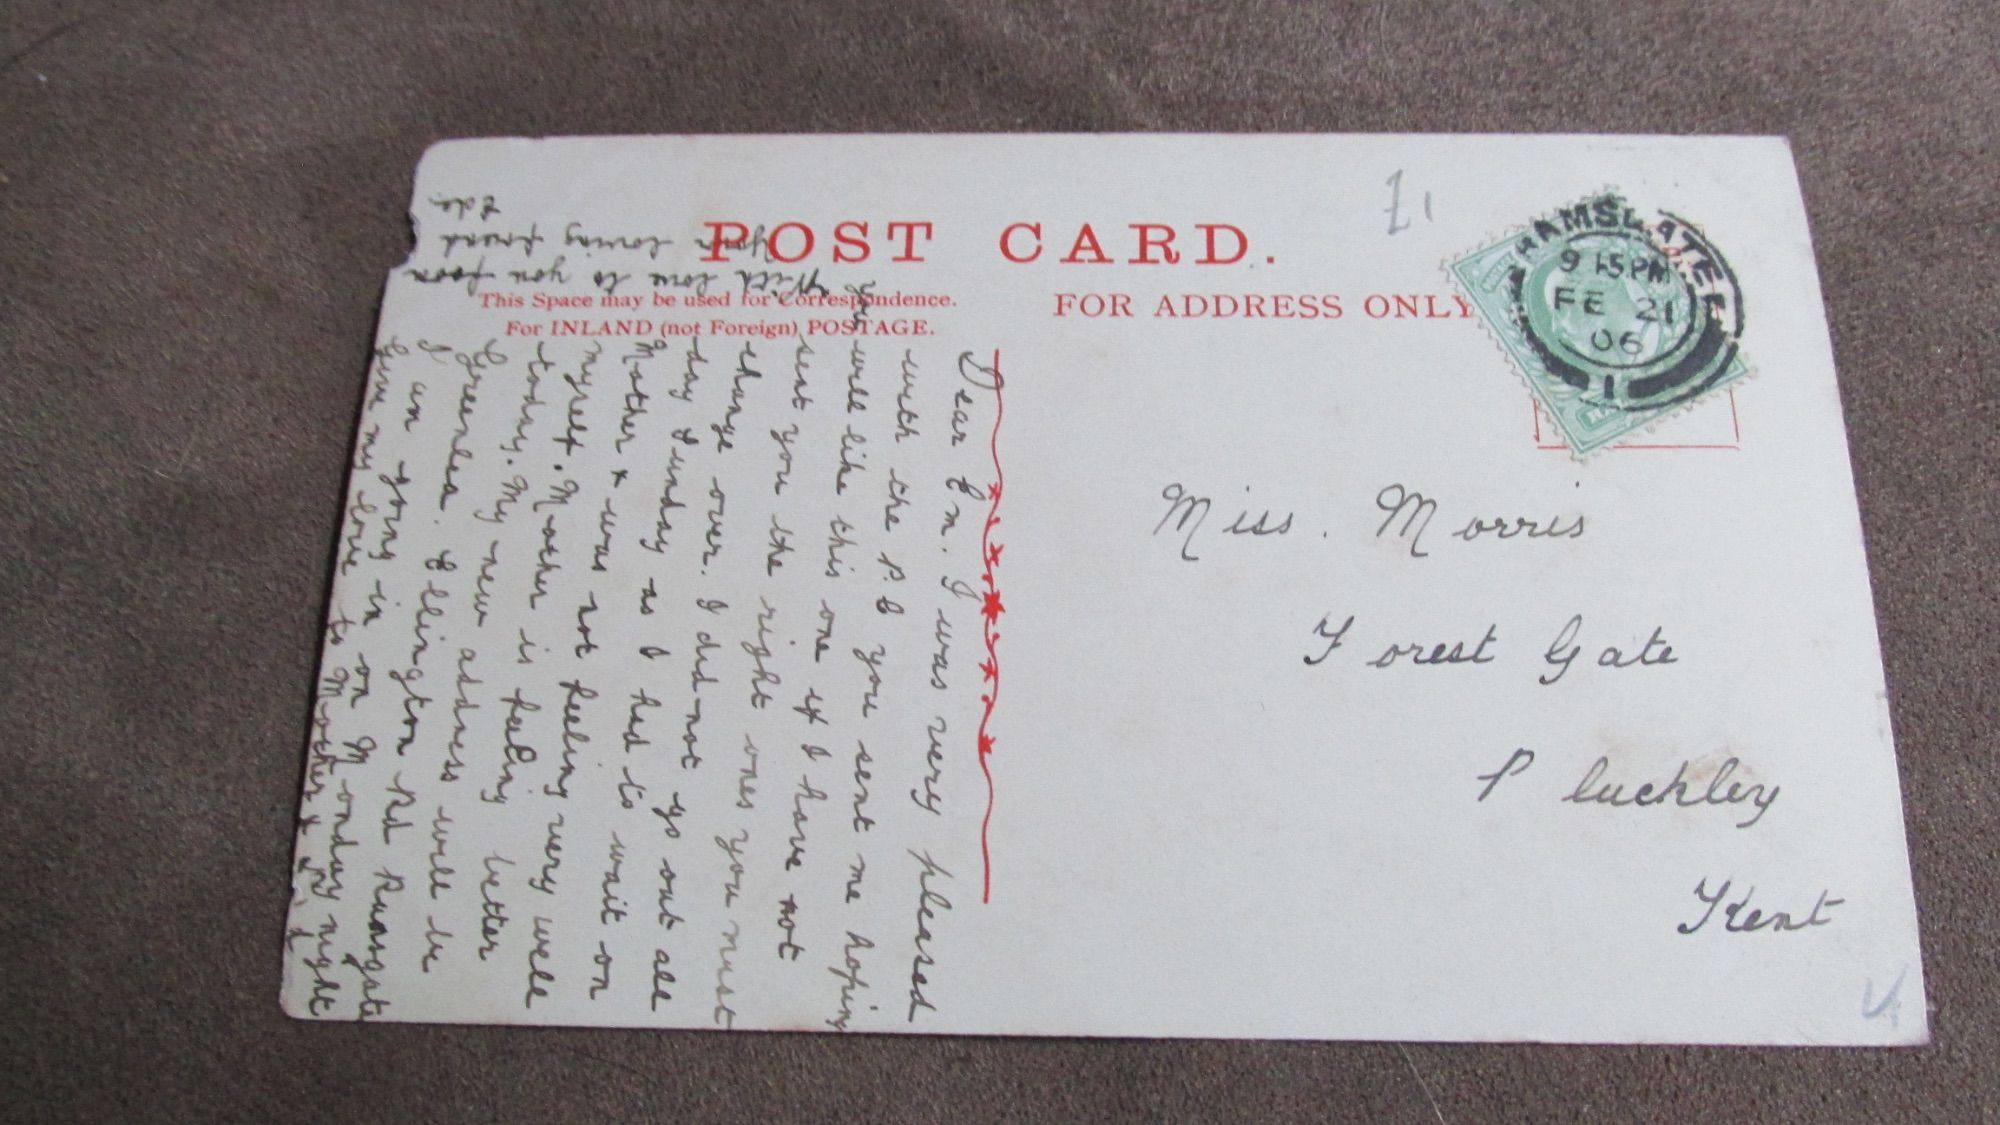 POST CARD.
This Space may be used for Correspondence.
For INLAND (not Foreign) POSTAGE.
FOR ADDRESS ONLY
RAMSGATE
9 15 PM
FE 21
06
1
£1
Miss. Morris
Forest Gate
Pluckley
Kent
Dear Em. I was very pleased
with the P.C you sent me hoping
you will like this one if I have not
sent you the right ones you must
change over. I did not go out all
day Sunday as I had to wait on
Mother & was not feeling very well
myself. Mother is feeling better
today. My new address will be
Greenlea. Ellington Rd Ramsgate
I am going in on Monday night
Give my love to Mother &
With love to you from
Your loving friend
Ede